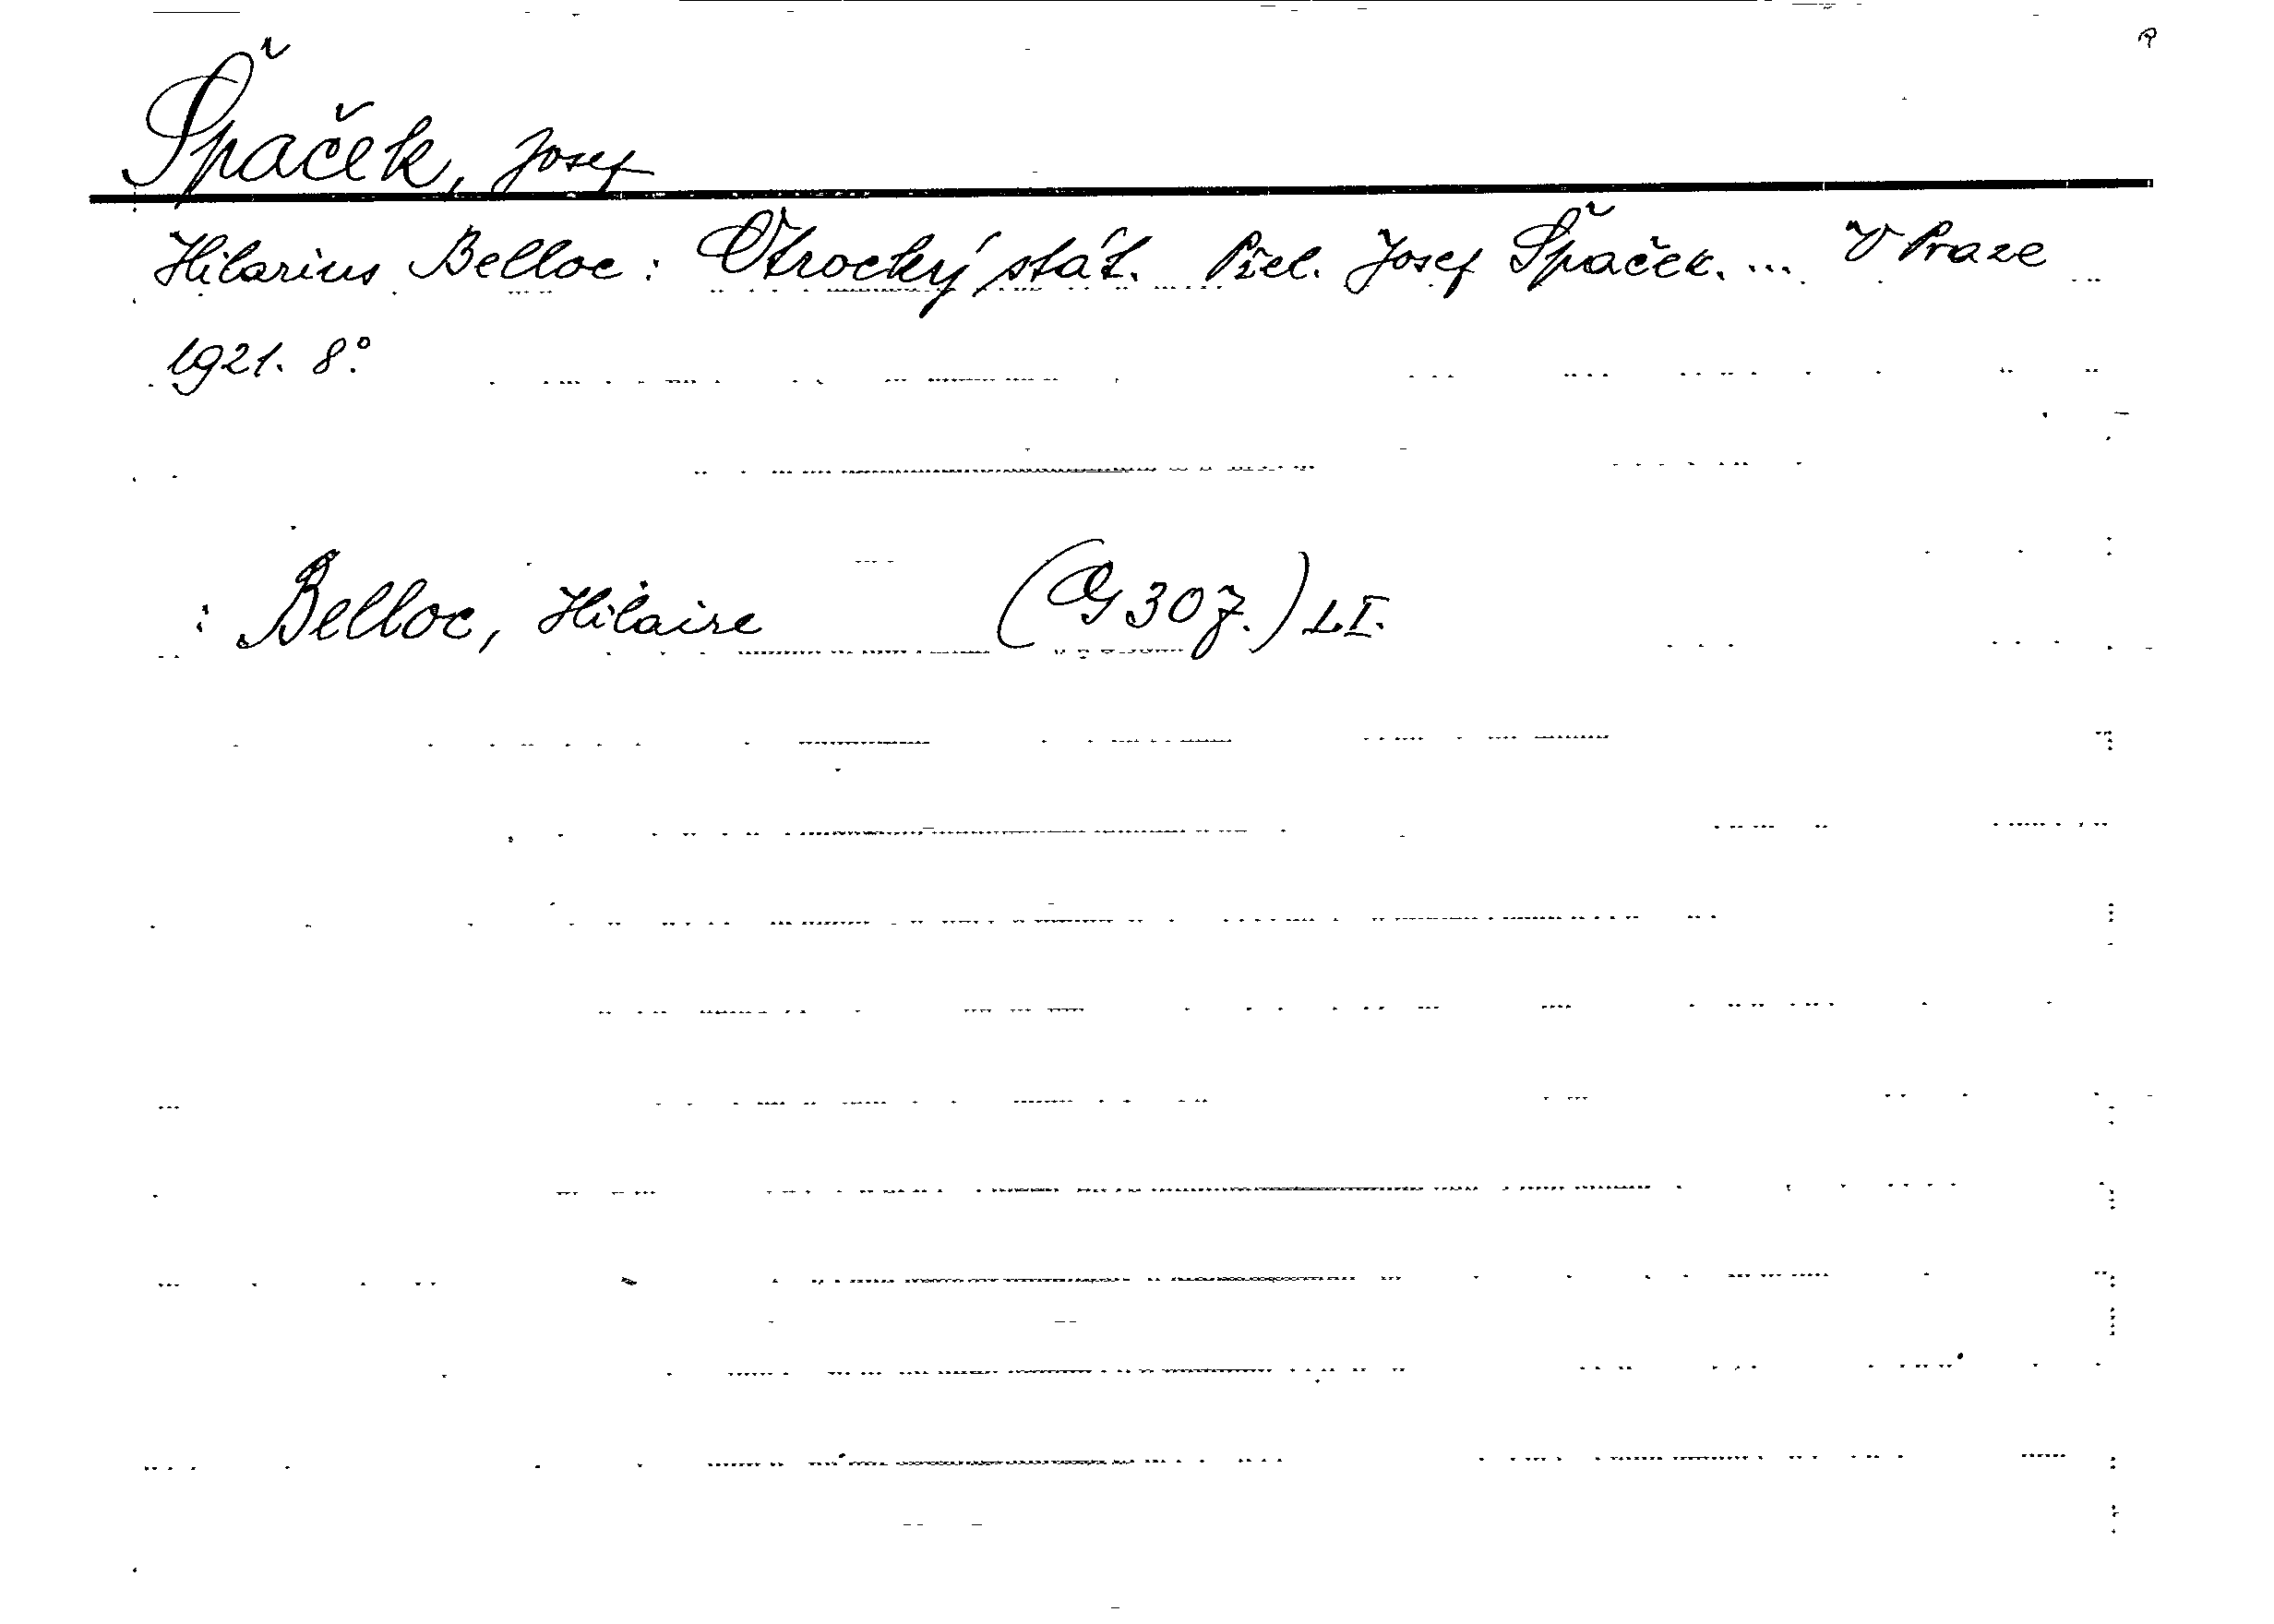 Špaček, Josef
Hilarius Belloc: Otrocký stát. Přel. Josef Špaček. ... V Praze
1921. 8°.
: Belloc, Hilaire (G 307.) L.I.